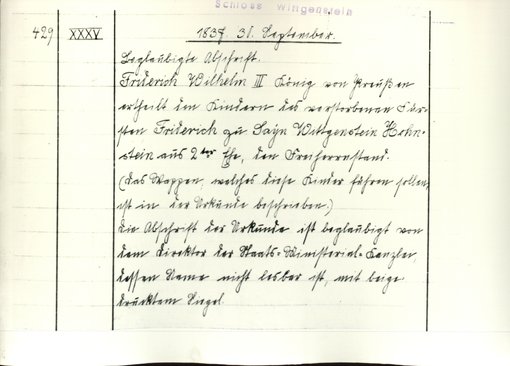 Schloss Wittgenstein
429 XXXV 1837. 31. September.
Beglaubigte Abschrift.
Friderich Wilhelm III König von Preußen
ertheilt den Kindern des verstorbenen Für-
sten Friderich zu Sayn Wittgenstein Hohn-
stein aus 2ter Ehe, den Freiherrnstand.
(das Wappen, welches diese Kinder führen sollen,
ist in der Urkunde beschrieben.)
Die Abschrift der Urkunde ist beglaubigt von
dem Direktor der Staats-Ministerial-Kanzlei
dessen Name nicht lesbar ist, mit beige
drucktem Siegel.